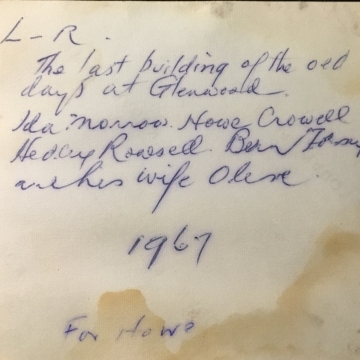 L - R.
The last building of the old
days at Glenwood.
Ida Morrow. Howe Crowell
Hedley Rowsell. Bern
and his wife Olive
1967
For Howe